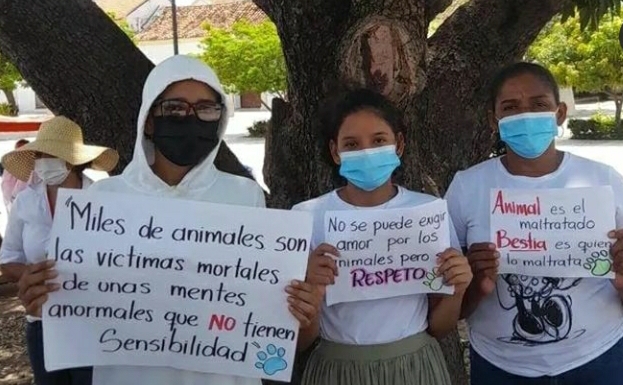 "Miles de animales son
las victimas mortales
de unas mentes
anormales que NO tienen
Sensibilidad
No se puede exigir
amor por los
animales pero
RESPETO
Animal es el
maltratado
Bestia es quien
lo maltrata